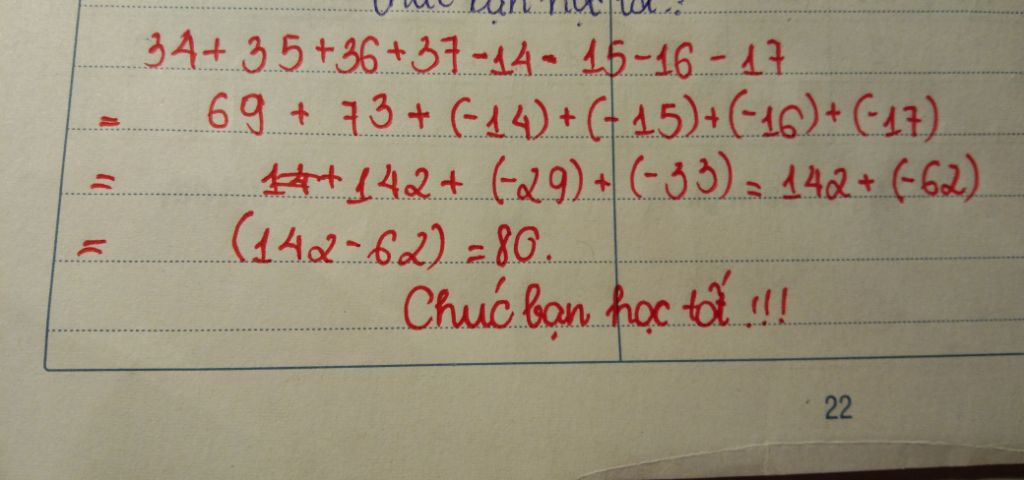 Chúc bạn học tốt!!
34 + 35 + 36 + 37 - 14 - 15 - 16 - 17
= 69 + 73 + (-14) + (-15) + (-16) + (-17)
= 142 + (-29) + (-33) = 142 + (-62)
= (142 - 62) = 80.
Chúc bạn học tốt !!!
22